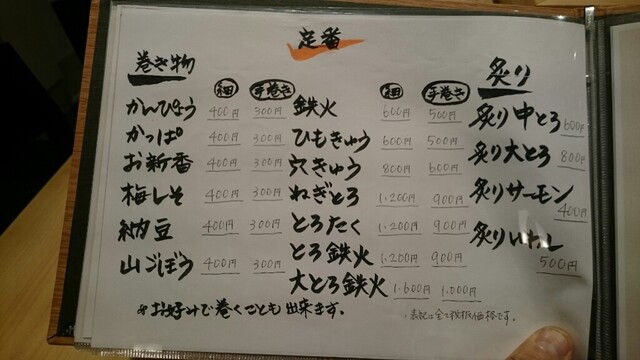 定番
巻き物 細 手巻き 細 手巻き 炙り
かんぴょう 400円 300円 鉄火 600円 500円 炙り中とろ 600円
かっぱ 400円 300円 ひもきゅう 600円 500円 炙り大とろ 800円
お新香 400円 300円 穴きゅう 800円 600円 炙りサーモン 400円
梅しそ 400円 300円 ねぎとろ 1,200円 900円 炙りいわし 500円
納豆 400円 300円 とろたく 1,200円 900円
山ごぼう 400円 300円 とろ鉄火 1,200円 900円
大とろ鉄火 1,600円 1,000円
※お好みで巻くことも出来ます。
・表記は全て税抜価格です。